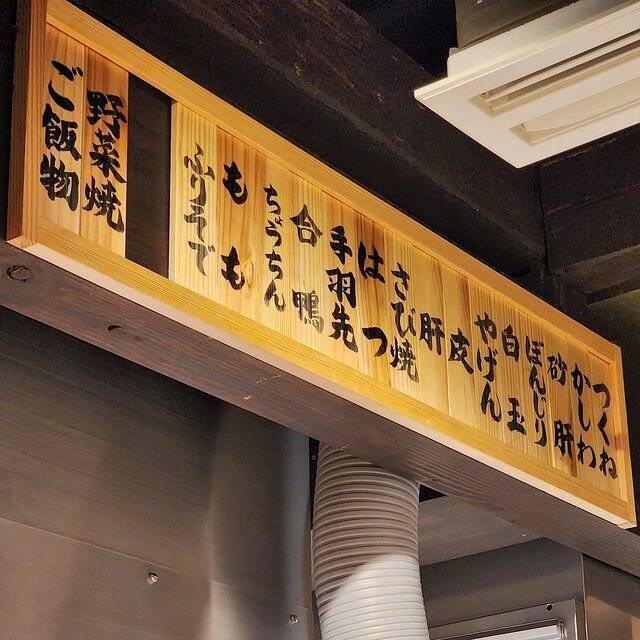 つくね
かしわ
砂肝
ぼんじり
白玉
やげん
皮
肝
さび焼
はつ
手羽先
合鴨
ちょうちん
もも
ふりそで
野菜焼
ご飯物